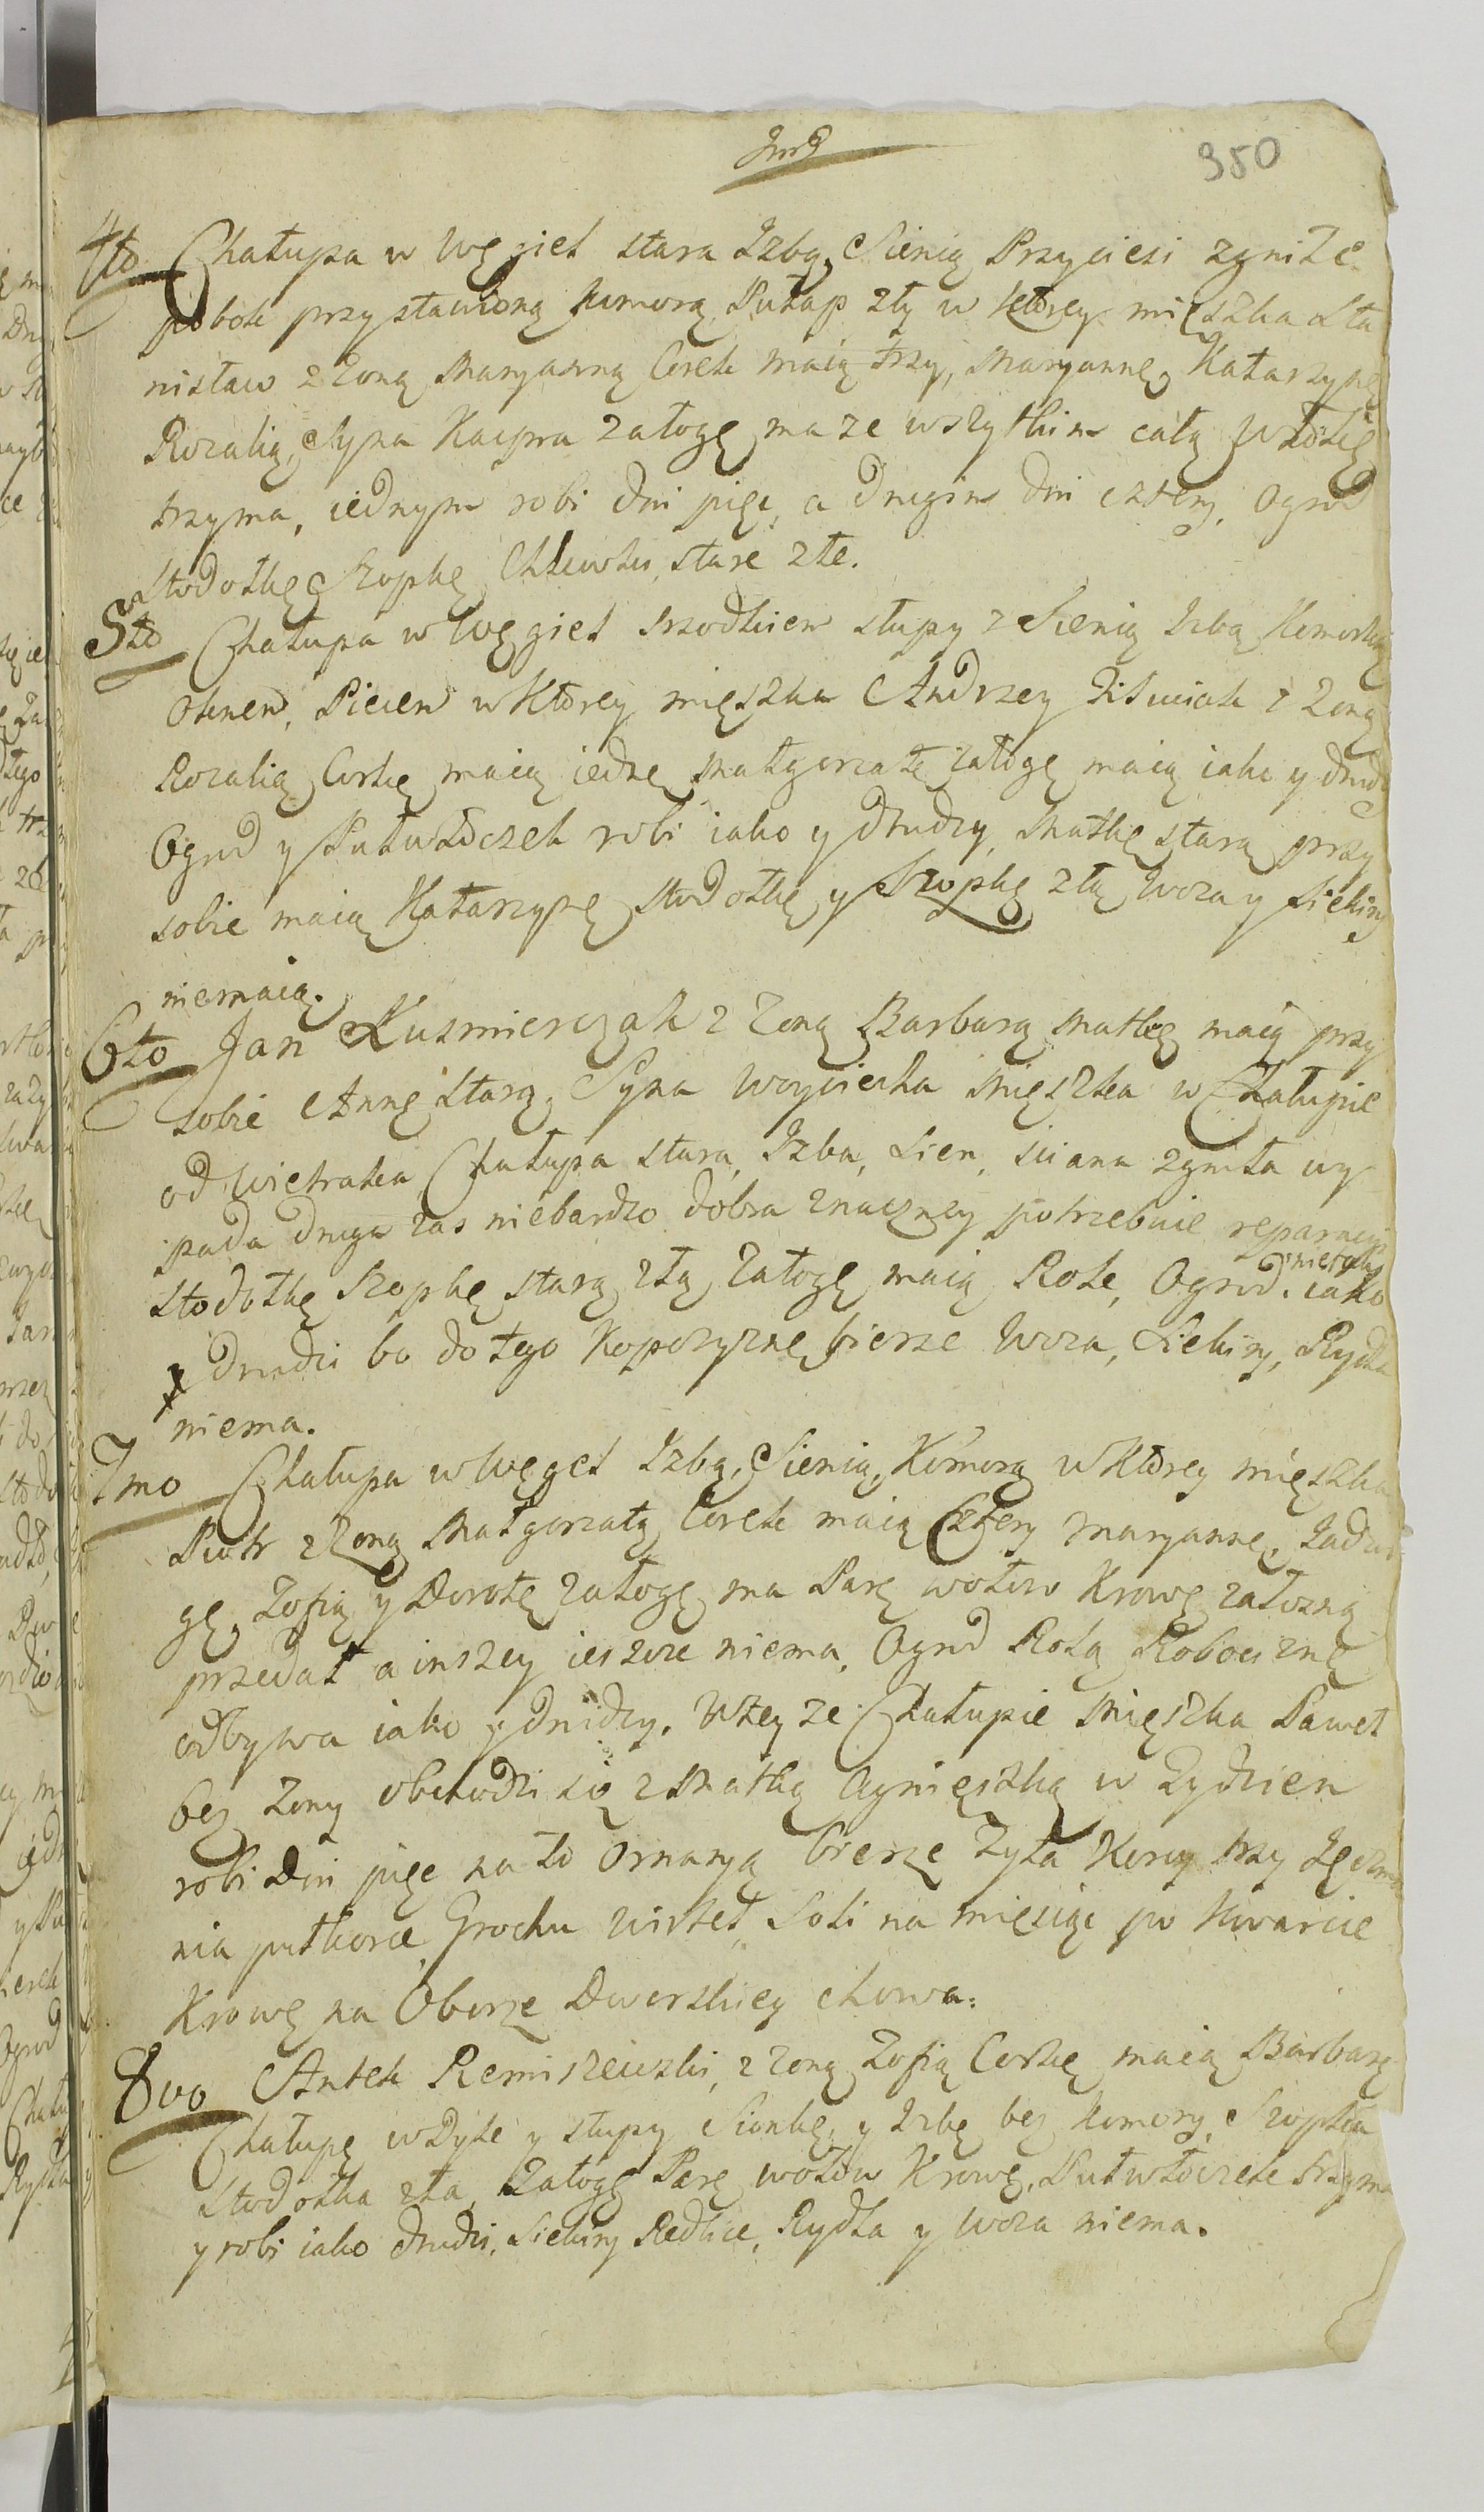 350
4to Chałupa w Węgieł stara Izbą, Sienią Przyciesi zgniłe
pobok przystawioną komorą, Pułap zły w ktorey mięszka Sta
nisław z Zoną Maryanną Corek maią trzy, Maryannę, Katarzynę
Rozalią, Syna Kacpra załogę ma ze wszytkim całą Włokę
trzyma, iednym robi dni pięc, a drugim dni cztery, Ogrod
Stodołkę Szopkę Chlewki, stare złe.
5to Chałupa w Węgieł srzodkiem słupy z Sienią Izbą Komorką
Oknem, Piecem w Ktorey mięszka Andrzey z Zoną
Rozalią Corkę maią iednę Małgorzatę załogę maią iako y drudzy
Ogrod y Pułwłoczek robi iako y drudzy, Matkę starą przy
sobie maią Katarzynę Stodołkę y Szopkę złą Woza y Siekiry
niemaią.
6to Jan Kusmierczak z Zoną Barbarą Matkę maią przy
sobie Annę Starą, Syna Woyciecha Mięszka w Chałupie
od Wietraka, Chałupa stara, Izba, Sien, sciana zgniła wy
pada druga zas niebardzo dobra znaczney potrzebuie reparacyi
Stodołkę Szopkę starą złą Załogę maią Rolę, Ogrod. nie tak iako
y drudzi bo do tego Kopczyznę bierze Woza, Siekiry, Rydla
niema.
7mo Chałupa w Węgeł Izbą, Sienią, Komorą w Ktorey mięszka
Piotr z Zoną Małgorzatą Corek maią Cztery Maryannę, Jadwi
gę, Zofią y Dorotę załogę ma Parę wołow Krowę załozną
przedał a inszey ieszcze niema, Ogrod Rolą Robociznę
odbywa iako y drudzy. W tey ze Chałupie Mięszka Paweł
bez Zony obchodzi się z Matką Agnięszką w Tydzien
robi Dni pięc na to Ornaryą bierze Zyta Korcy trzy Jęczmie
nia pułkorce, Grochu wiertel, Soli na miesiąc po kwarcie
Krowę na Oborze Dworskiey chowa.
8vo Antek Remiszewski, z Zoną Zofią Corkę maią Barbarę
Chałupę w Dyle y słupy Sionkę, y Izbę bez komory, Szopka
Stodołka zła, Załogę Parę wołow Krowę, Pułwłoczek trzyma
y robi iako drudzi, Siekiry Redlice, Rydla y Woza niema.